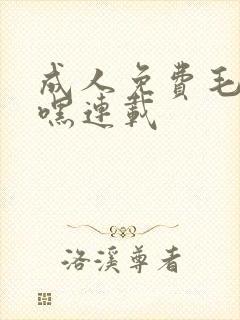 成人免費毛
嘿連載
洛溪尊者